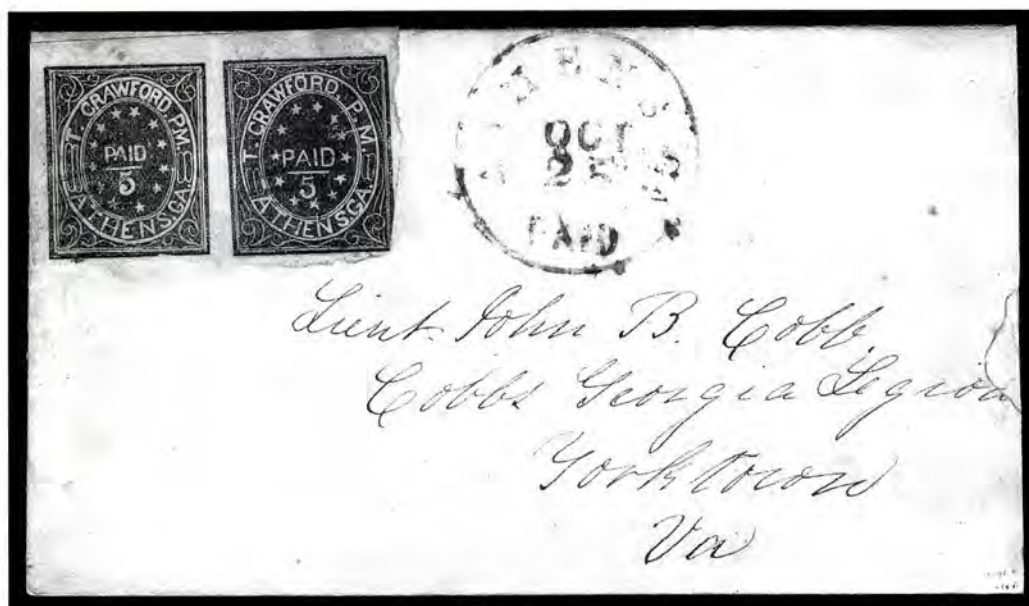 T. CRAWFORD, P.M.
PAID
5
ATHENS, GA.
T. CRAWFORD, P.M.
PAID
5
ATHENS, GA.
ATHENS
OCT
PAID
Lieut. John B. Cobb
Cobbs Georgia Legion
Yorktown
Va